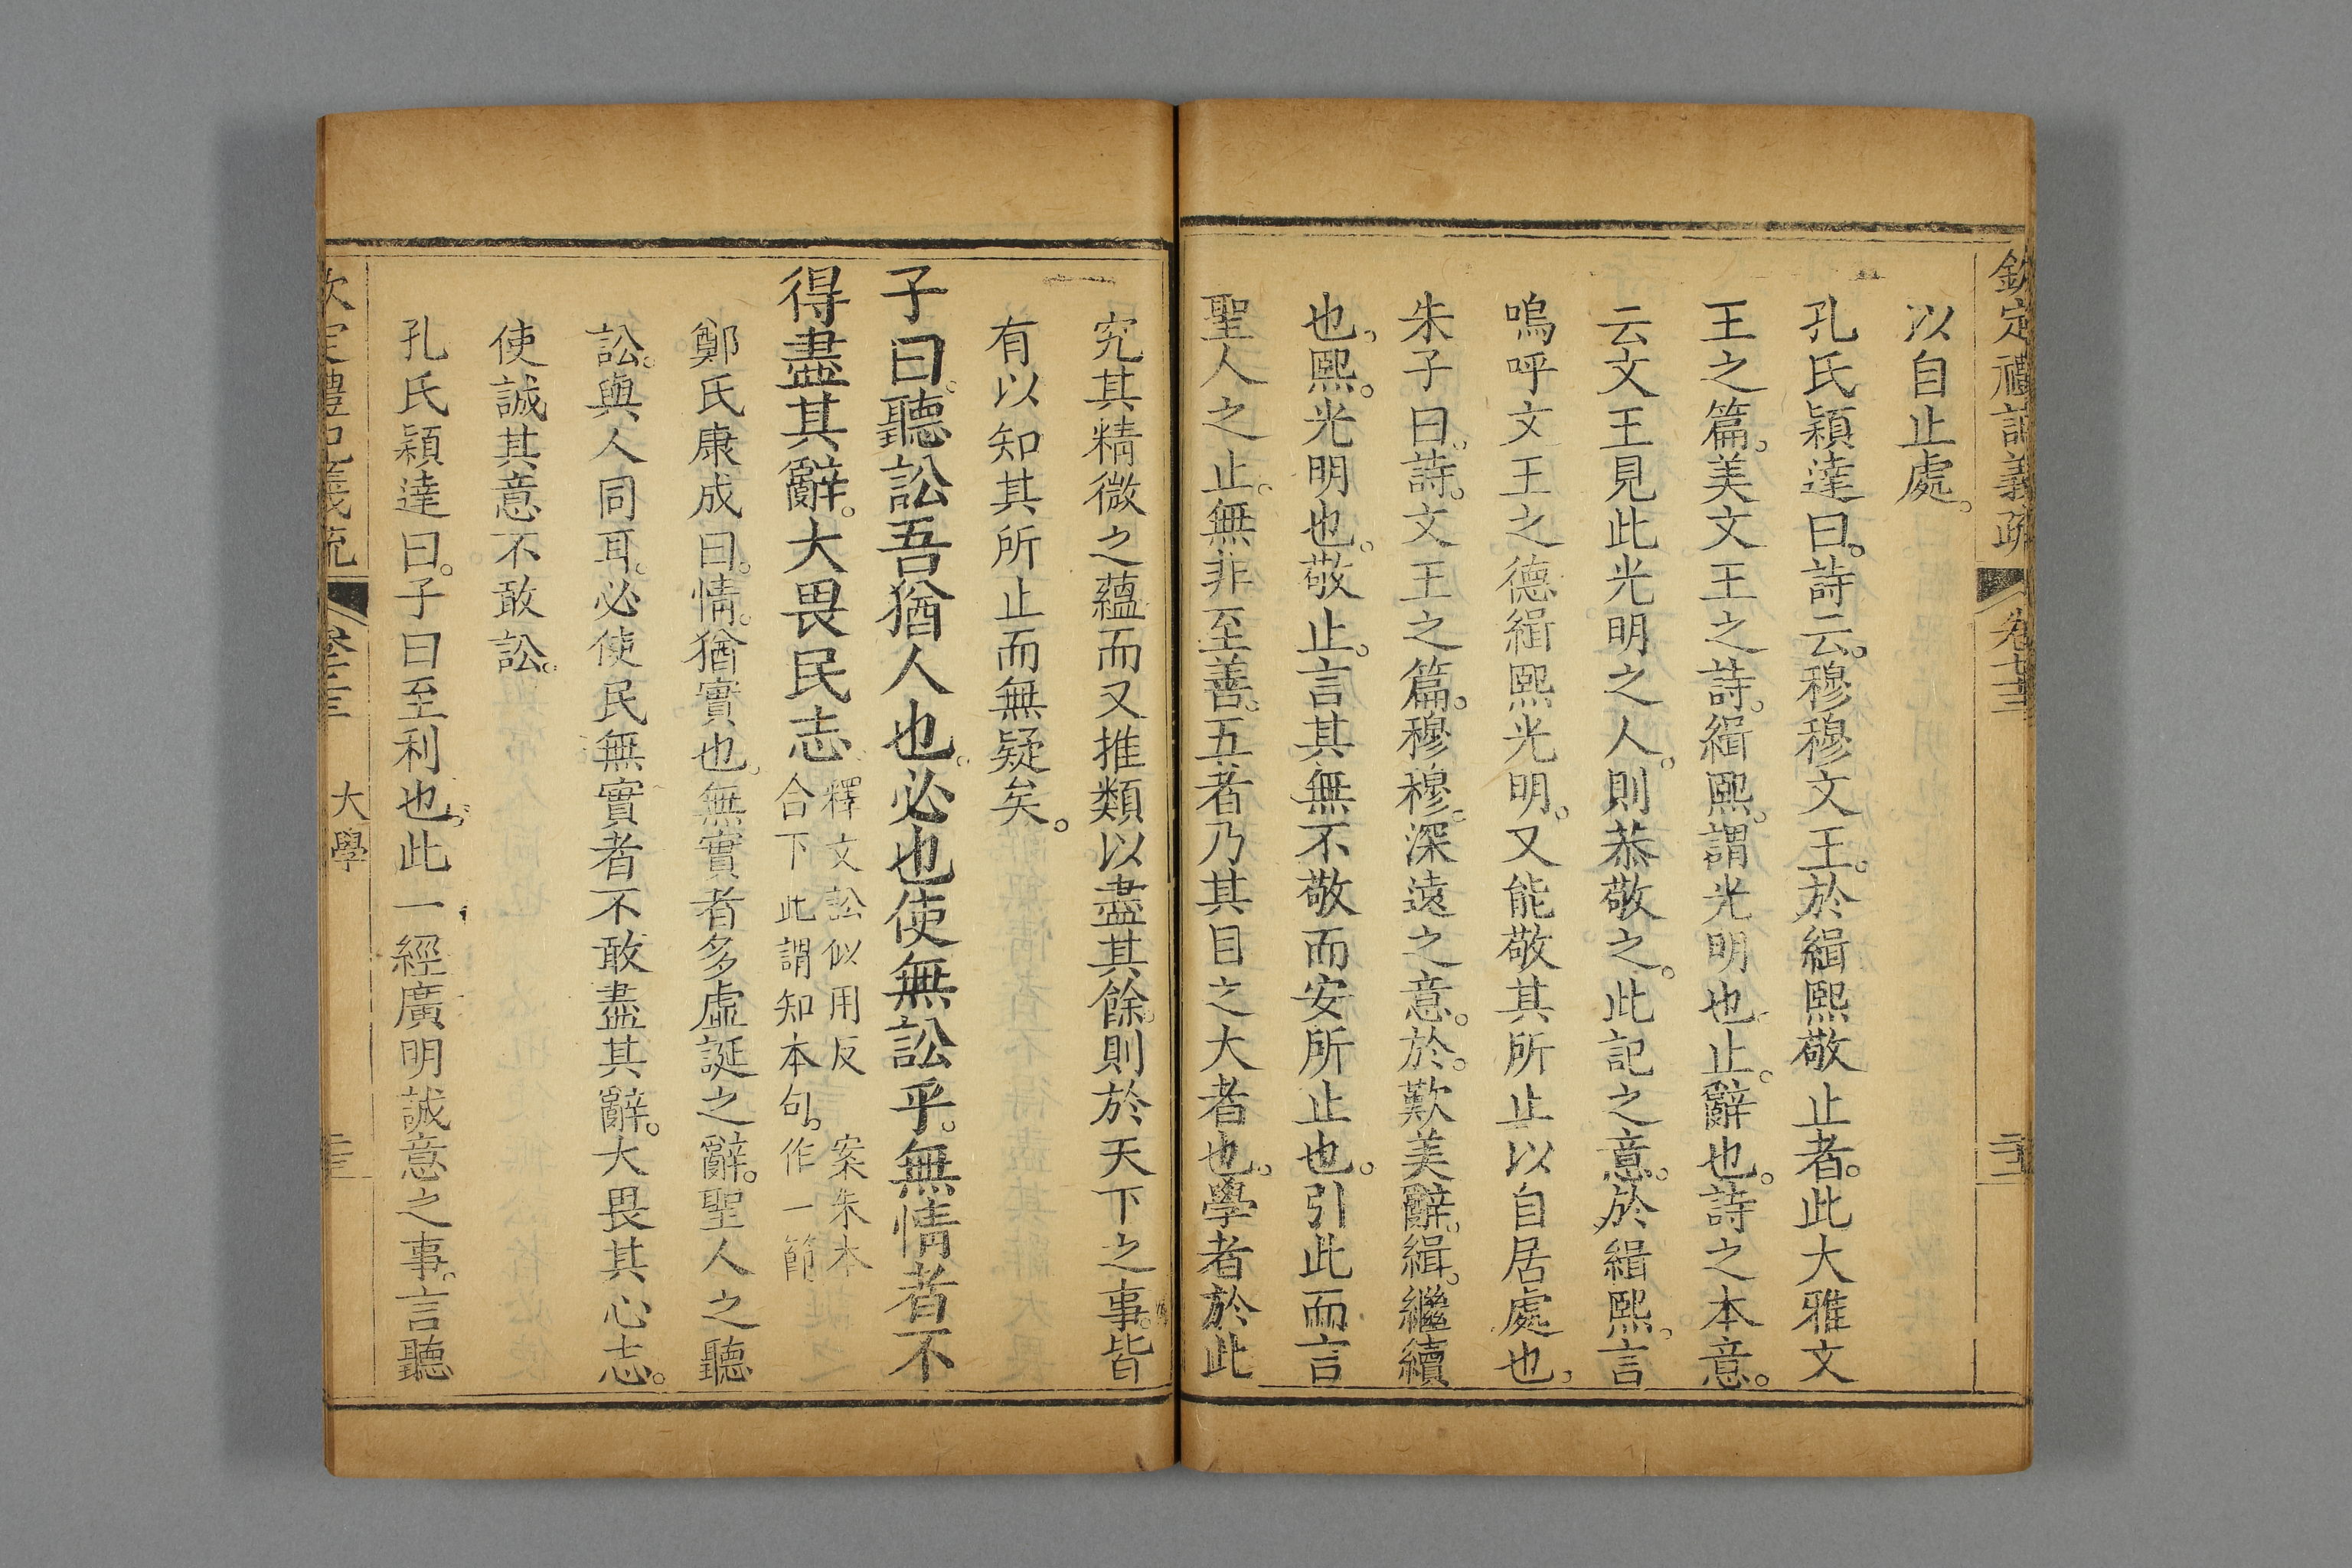 欽定禮記義疏 卷七十三
以自止處。
孔氏穎達曰。詩云。穆穆文王。於緝熙敬止者。此大雅文
王之篇。美文王之詩。緝熙。謂光明也。止。辭也。詩之本意。
云文王見此光明之人。則恭敬之。此記之意。於緝熙。言
嗚呼文王之德緝熙光明。又能敬其所止以自居處也。
朱子曰。詩。文王之篇。穆穆。深遠之意。於。歎美辭。緝。繼續
也。熙。光明也。敬止。言其無不敬而安所止也。引此而言
聖人之止。無非至善。五者乃其目之大者也。學者於此
究其精微之蘊而又推類以盡其餘。則於天下之事。皆
有以知其所止而無疑矣。
子曰。聽訟吾猶人也。必也使無訟乎。無情者不
得盡其辭。大畏民志
釋文訟似用反 案朱本
合下此謂知本句。作一節
鄭氏康成曰。情。猶實也。無實者多虛誕之辭。聖人之聽
訟。與人同耳。必使民無實者不敢盡其辭。大畏其心志。
使誠其意不敢訟。
孔氏穎達曰。子曰至利也。此一經廣明誠意之事。言聽
大學